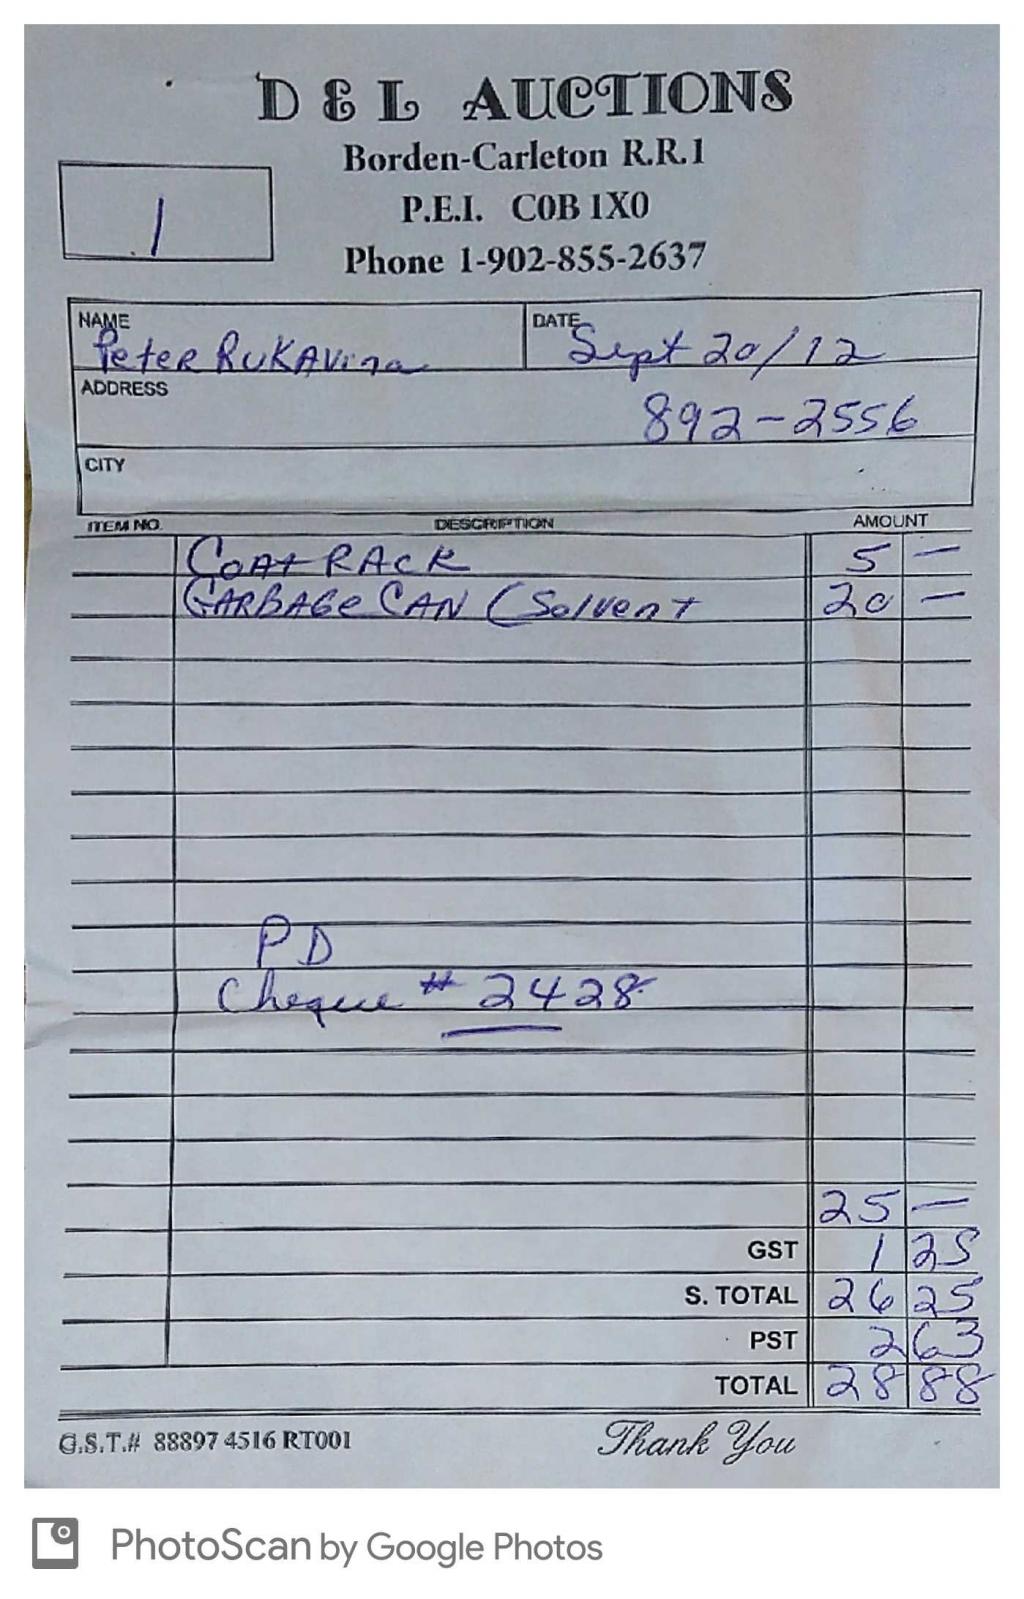 D & L AUCTIONS
Borden-Carleton R.R.1
P.E.I. C0B 1X0
Phone 1-902-855-2637
1
NAME
Peter RUKAVina
DATE
Sept 20/12
ADDRESS
892-2556
CITY
ITEM NO. DESCRIPTION AMOUNT
COAt RACK 5 —
GARBAGe CAN (Solvent 20 —
PD
Cheque # 2428
25 —
GST 1 25
S. TOTAL 26 25
PST 2 63
TOTAL 28 88
G.S.T.# 88897 4516 RT001 Thank You
PhotoScan by Google Photos